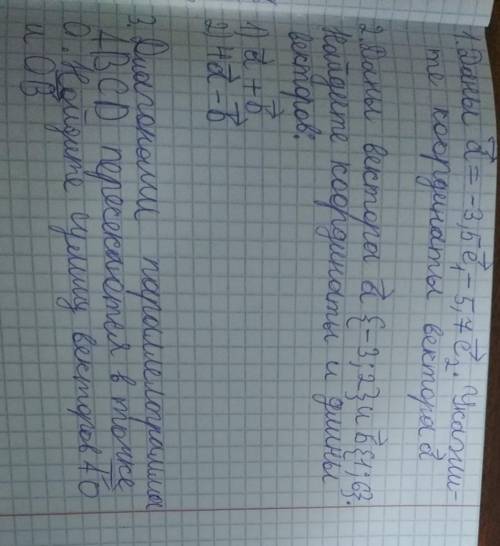 1. Даны a⃗ = -3,5e⃗₁ - 5,7e⃗₂. Укажи-
те координаты вектора a⃗
2. Даны вектора a⃗{-3;2} и b⃗{1;6}.
Найдите координаты и длины
векторов:
1) a⃗ + b⃗
2) 4a⃗ - b⃗
3. Диагонали параллелограмма
ABCD пересекаются в точке
O. Найдите сумму векторов AO
и OB